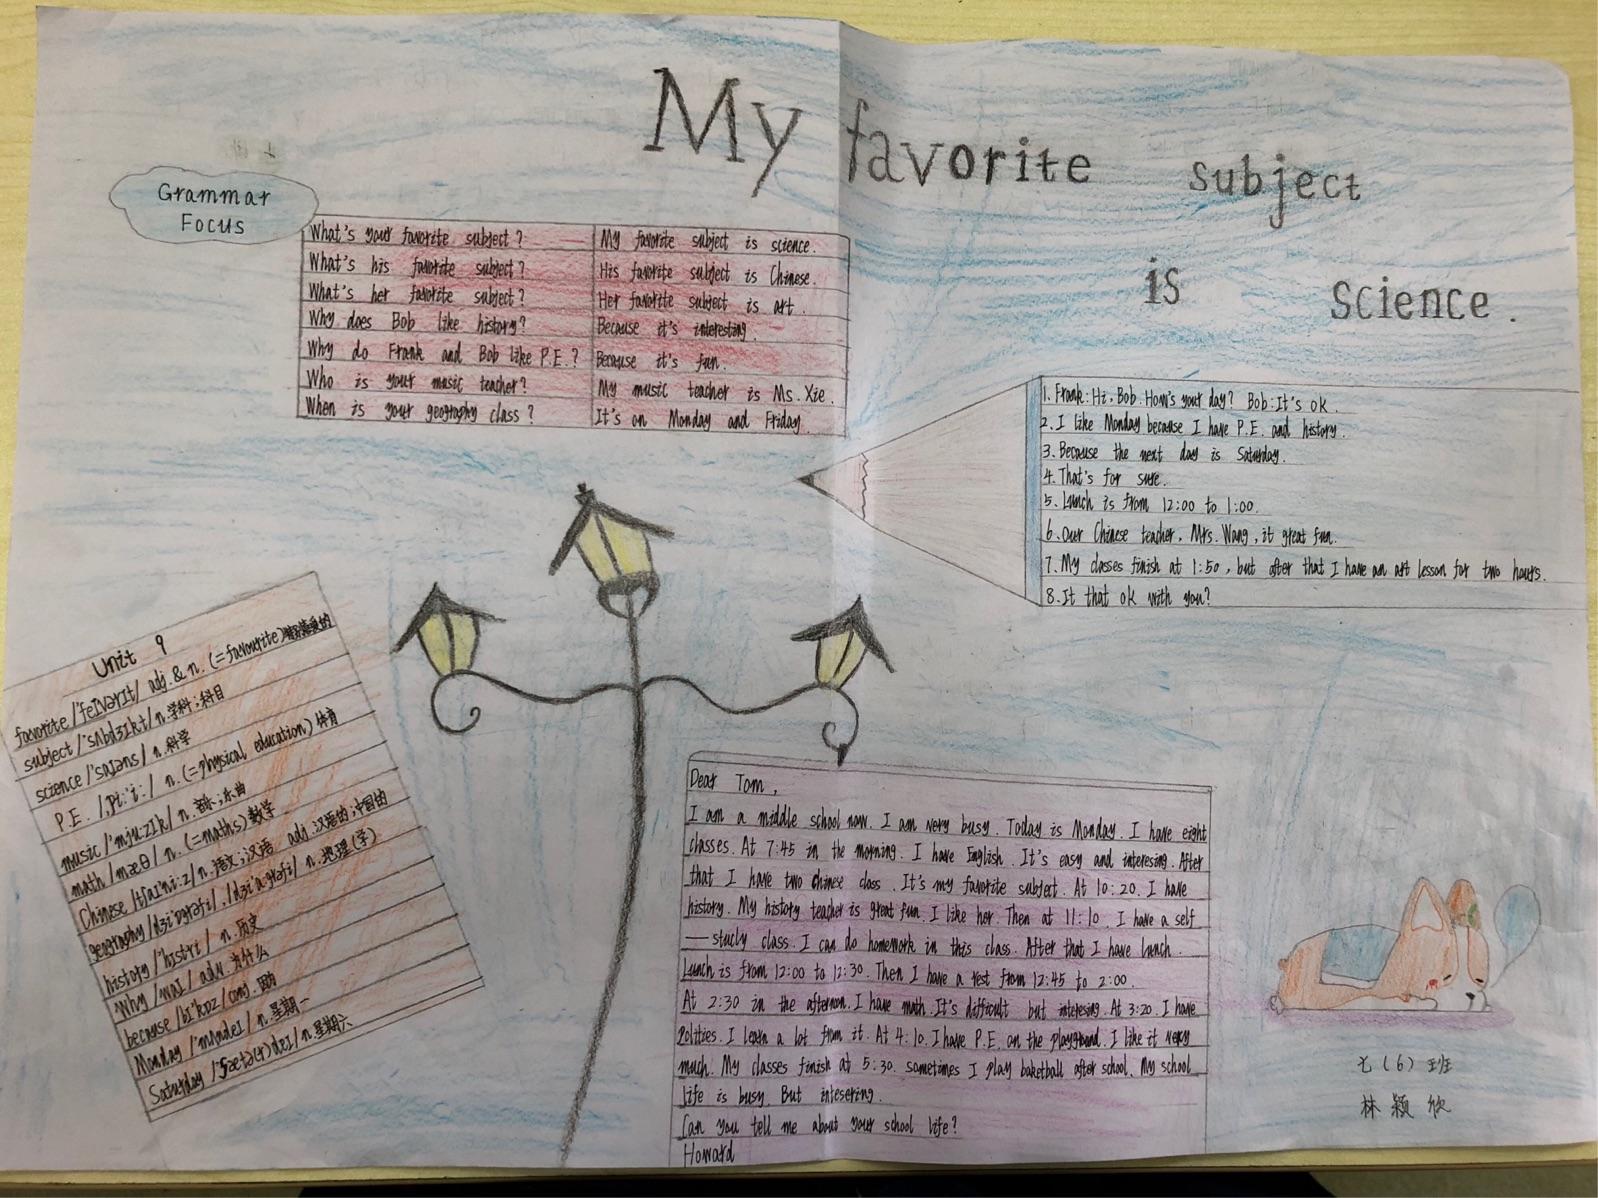 My favorite subject
is science.
Grammar
Focus
What's your favorite subject? My favorite subject is science.
What's his favorite subject? His favorite subject is Chinese.
What's her favorite subject? Her favorite subject is art.
Why does Bob like history? Because it's interesting.
Why do Frank and Bob like P.E.? Because it's fun.
Who is your music teacher? My music teacher is Ms. Xie.
When is your geography class? It's on Monday and Friday.
1. Frank: Hi, Bob. How's your day? Bob: It's ok.
2. I like Monday because I have P.E. and history.
3. Because the next day is Saturday.
4. That's for sure.
5. Lunch is from 12:00 to 1:00.
6. Our Chinese teacher, Mrs. Wang, it great fun.
7. My classes finish at 1:50, but after that I have an art lesson for two hours.
8. It that ok with you?
Unit 9
favorite /'feIvərIt/ adj. & n. (=favourite)
subject /'sʌbdʒIkt/ n. 学科;科目
science /'saIəns/ n. 科学
P.E. /,pi:'i:/ n. (=physical education) 体育
music /'mju:zIk/ n. 音乐;乐曲
math /mæθ/ n. (=maths) 数学
Chinese /tʃaI'ni:z/ n. 语文;汉语 adj. 汉语的;中国的
geography /dʒi'ɒgrəfi/, /dʒi'a:grəfi/ n. 地理(学)
history /'hIstri/ n. 历史
Why /waI/ adv. 为什么
because /bI'kɒz/ conj. 因为
Monday /'mʌndeI/ n. 星期一
Saturday /'sætə(r)deI/ n. 星期六
Dear Tom,
I am a middle school now. I am very busy. Today is Monday. I have eight
classes. At 7:45 in the morning. I have English. It's easy and interesing. After
that I have two chinese class. It's my favorite subject. At 10:20. I have
history. My history teacher is great fun. I like her. Then at 11:10. I have a self
—study class. I can do homework in this class. After that I have lunch.
Lunch is from 12:00 to 12:30. Then I have a rest from 12:45 to 2:00.
At 2:30 in the afternon. I have math. It's difficult but intersing. At 3:20. I have
Politics. I learn a lot from it. At 4:10. I have P.E. on the playground. I like it very
much. My classes finish at 5:30. sometimes I play baketball after school. My school
life is busy. But intesering.
Can you tell me about your school life?
Howard
七(6)班
林颖欣